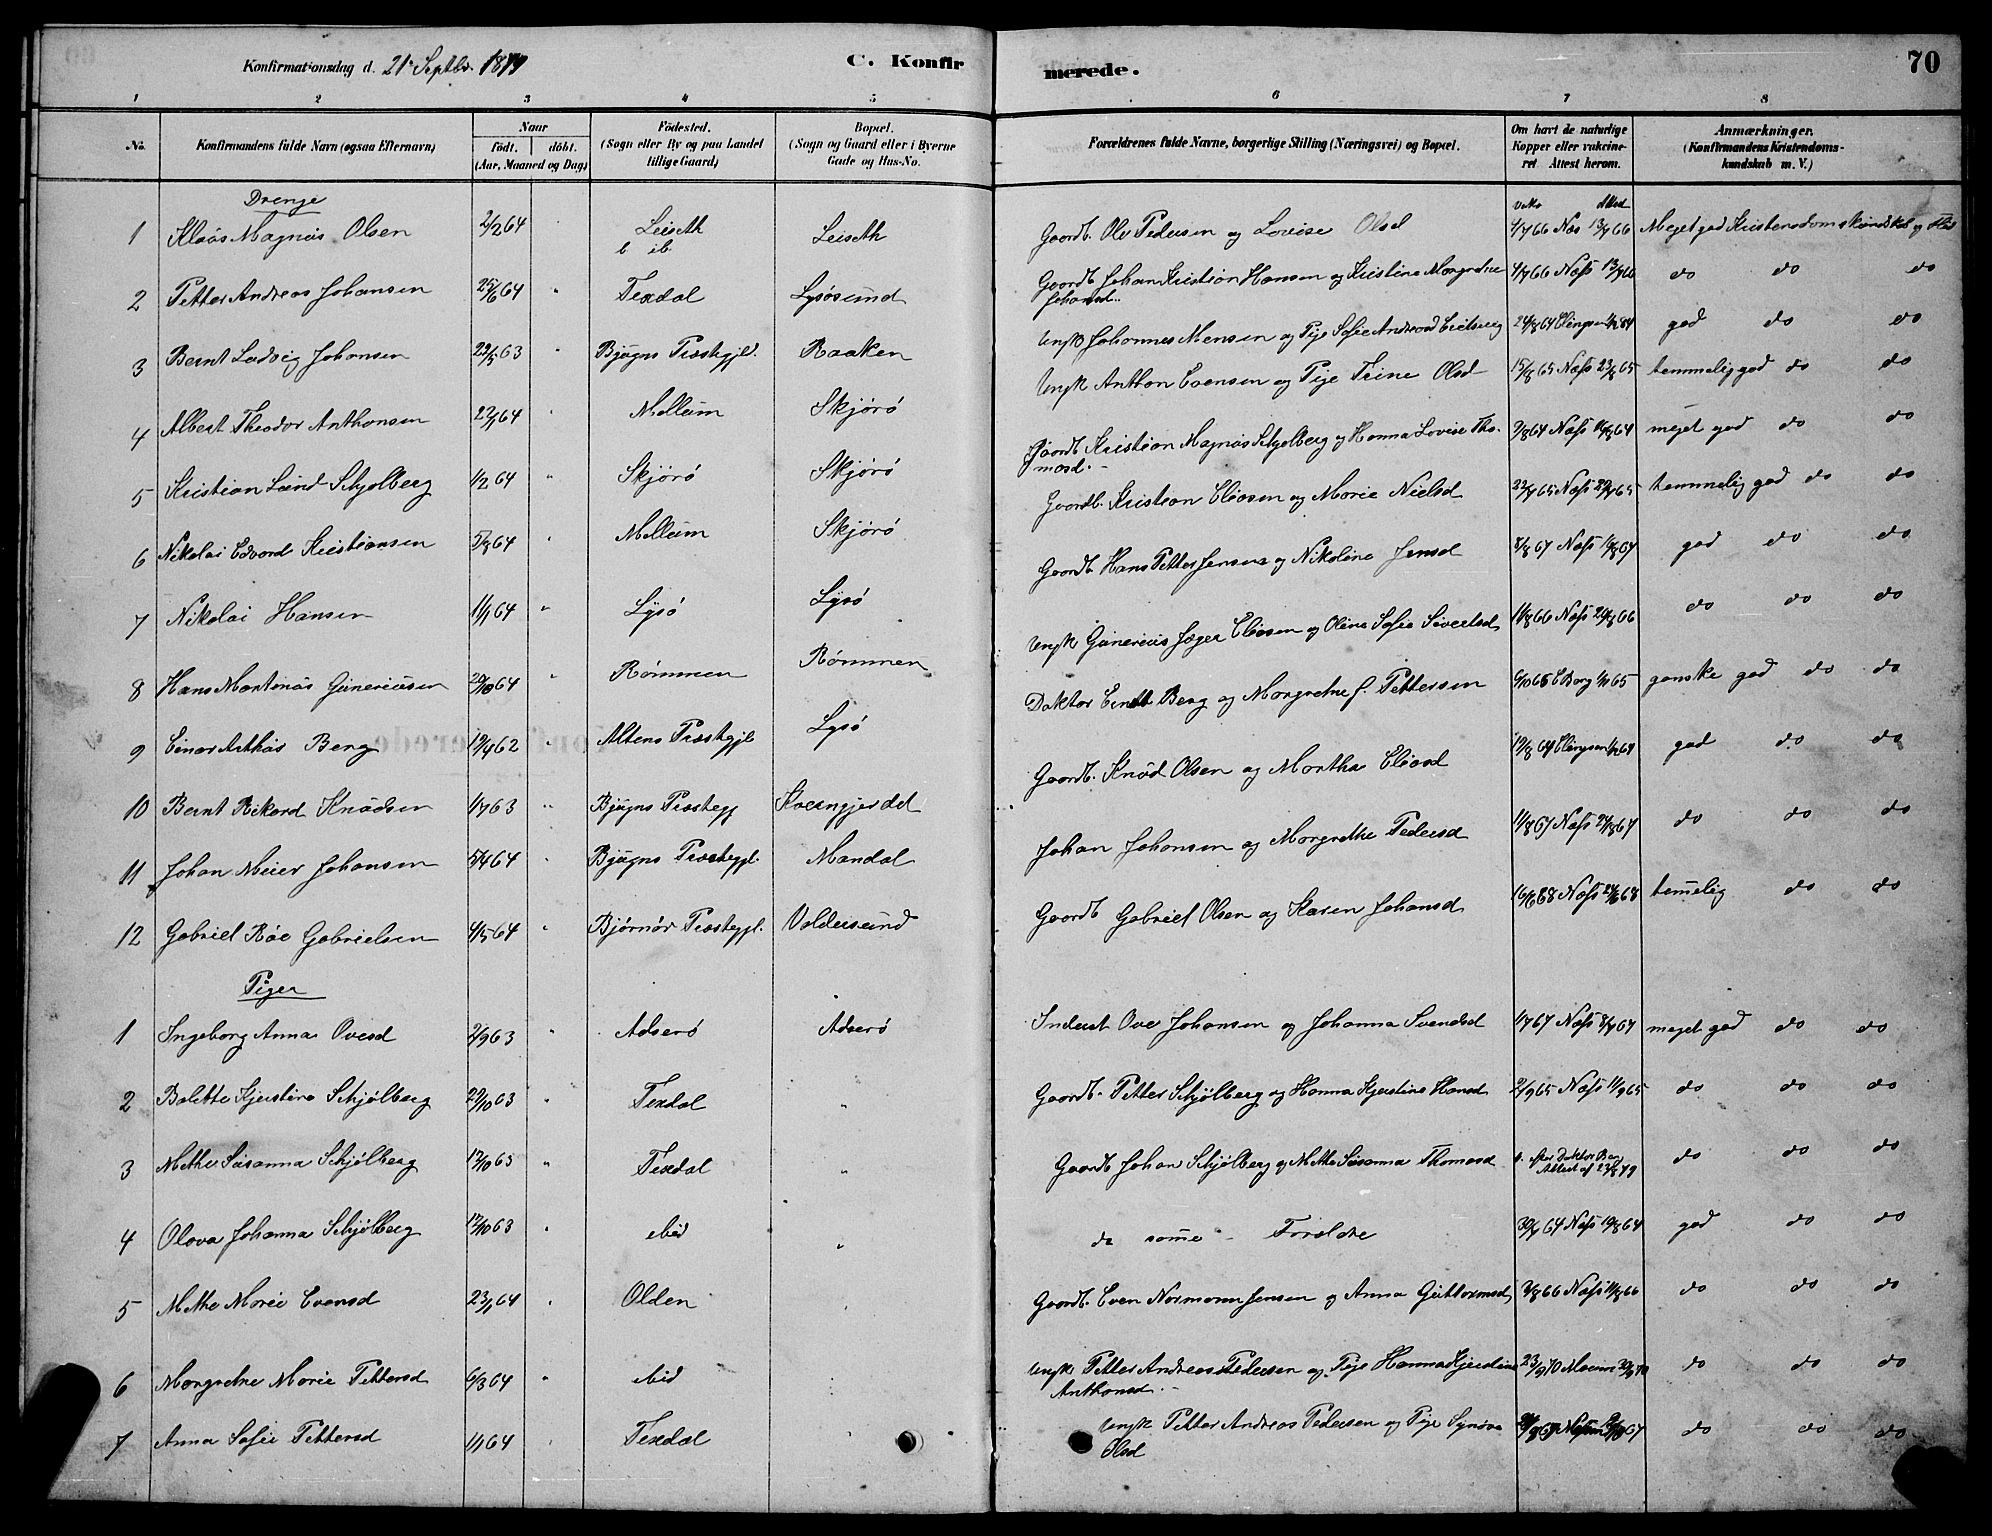 Konfirmationsdag d. 21 Septbr. 1879
C. Konfirmerede.
70
1 2 3 4 5 6 7 8
No.
Konfirmandens fulde Navn (ogsaa Efternavn)
Naar
født. døbt.
(Aar, Maaned og Dag)
Fødested.
(Sogn eller By og paa Landet
tillige Gaard)
Bopæl.
(Sogn og Gaard eller i Byerne
Gade og Hus-No.
Forældrenes fulde Navne, borgerlige Stilling (Næringsvei) og Bopæl.
Om havt de naturlige
Kopper eller vakcine-
ret Attest herom.
Anmærkninger.
(Konfirmandens Kristendoms-
kundskab m. V.)
Drenge
1 Klaus Magnus Olsen 2/2 64 Leiseth Leiseth Gaardb. Ole Pedersen og Lovise Olsd 4/7 66 Næs 13/7 66 Meget god Kristendomskundskab og Flid
2 Petter Andreas Johansen 25/6 64 Texdal Lysøsund Gaardb. Johan Kristian Hansen og Kristine Margrethe
Johansd. 4/7 66 Næss 13/7 66 do do do
3 Bernt Ludvig Johansen 22/3 63 Bjugns Præstegjld. Raaken Ungk Johannes Mensen og Pige Sofie Andrea 24/8 64 Elingsen god do do
4 Albert Theodor Anthonsen 22/1 64 Mellum Skjørø Ungk Anthon Evensen og Pige Trine Olsd 15/8 65 Næss 23/8 65 temmelig god do do
5 Kristian Lund Schjølberg 1/2 64 Skjörö Skjørø Gaardb. Kristian Magnus Schjølberg og Hanna Lovise Tho-
masd. 9/8 64 Næss 16/8 64 meget god do do
6 Nikolai Edvard Kristiansen 5/3 64 Mellum Skjørø Gaardb. Kristian Eliasen og Marie Nielsd 22/7 65 Næss 29/7 65 temmelig god do do
7 Nikolai Hansen 11/1 64 Lysø Lysø Gaardb. Hans Petter Jensen og Nikoline Jensd 8/8 67 Næss 19/8 67 god do do
8 Hans Martinus Guneriussen 20/10 64 Rømmen Rømmen Ungk Gunerius Jæger Eliasen og Oline Sofie Sivertsd 11/8 66 Næss 20/8 66 do do do
9 Einar Arthur Berg 19/4 62 Altens Præstegjld Lysø Doktor Berg og Margrethe f. Pettersen 6/10 65 E Berg 1/11 65 ganske god do do
10 Bernt Rikard Knudsen 1/7 63 Bjugns Præstegj Kværngjerdet Gaardb. Knud Olsen og Martha Eliasd 19/8 64 Elingsen god do do
11 Johan Meier Johansen 5/4 64 Bjugns Præstegjl. Mandal Johan Johansen og Margrethe Pedersd 11/8 67 Næss 24/8 67 do do do
12 Gabriel Roe Gabrielsen 4/5 64 Bjørnør Præstegjl. Valdersund Gaardb Gabriel Olsen og Karen Johansd 16/6 68 Næss 24/6 68 temelig do do
Piger
1 Ingeborg Anna Ovesd 2/9 63 Adserø Adserø Inderst Ove Johansen og Johanna Svendsd 1/7 67 Næss 8/7 67 meget god do do
2 Bolette Kjerstine Schjølberg 29/10 63 Texdal " Gaardb. Petter Schjølberg og Hanna Kjerstine Hansd 2/9 65 Næss 11/9 65 do do do
3 Methe Susanna Schjølberg 12/10 63 Texdal " Gaardb Johan Schjølberg og Methe Susanna Thomasd v. efter Doktor Berg
Attest af 23/8 79 do do do
4 Olava Johanna Schjølberg 12/10 63 ibid " de samme Forældre 30/7 64 Næss 19/8 64 god do do
5 Methe Marie Evensd 23/1 64 Olden Gaardb. Even Normann Jensen og Anna Guttormsd 2/8 66 Næss 11/8 66 do do do
6 Margrethe Marie Pettersd 6/3 64 ibid Ungk Petter Andreas Pedersen og Pige Hanna Kjerstine
Anthonsd. 23/9 70 do do do
7 Anna Sofie Pettersd 1/1 64 Texdal Ungk Petter Andreas Pedersen og Pige Synøva
Olsd do do do